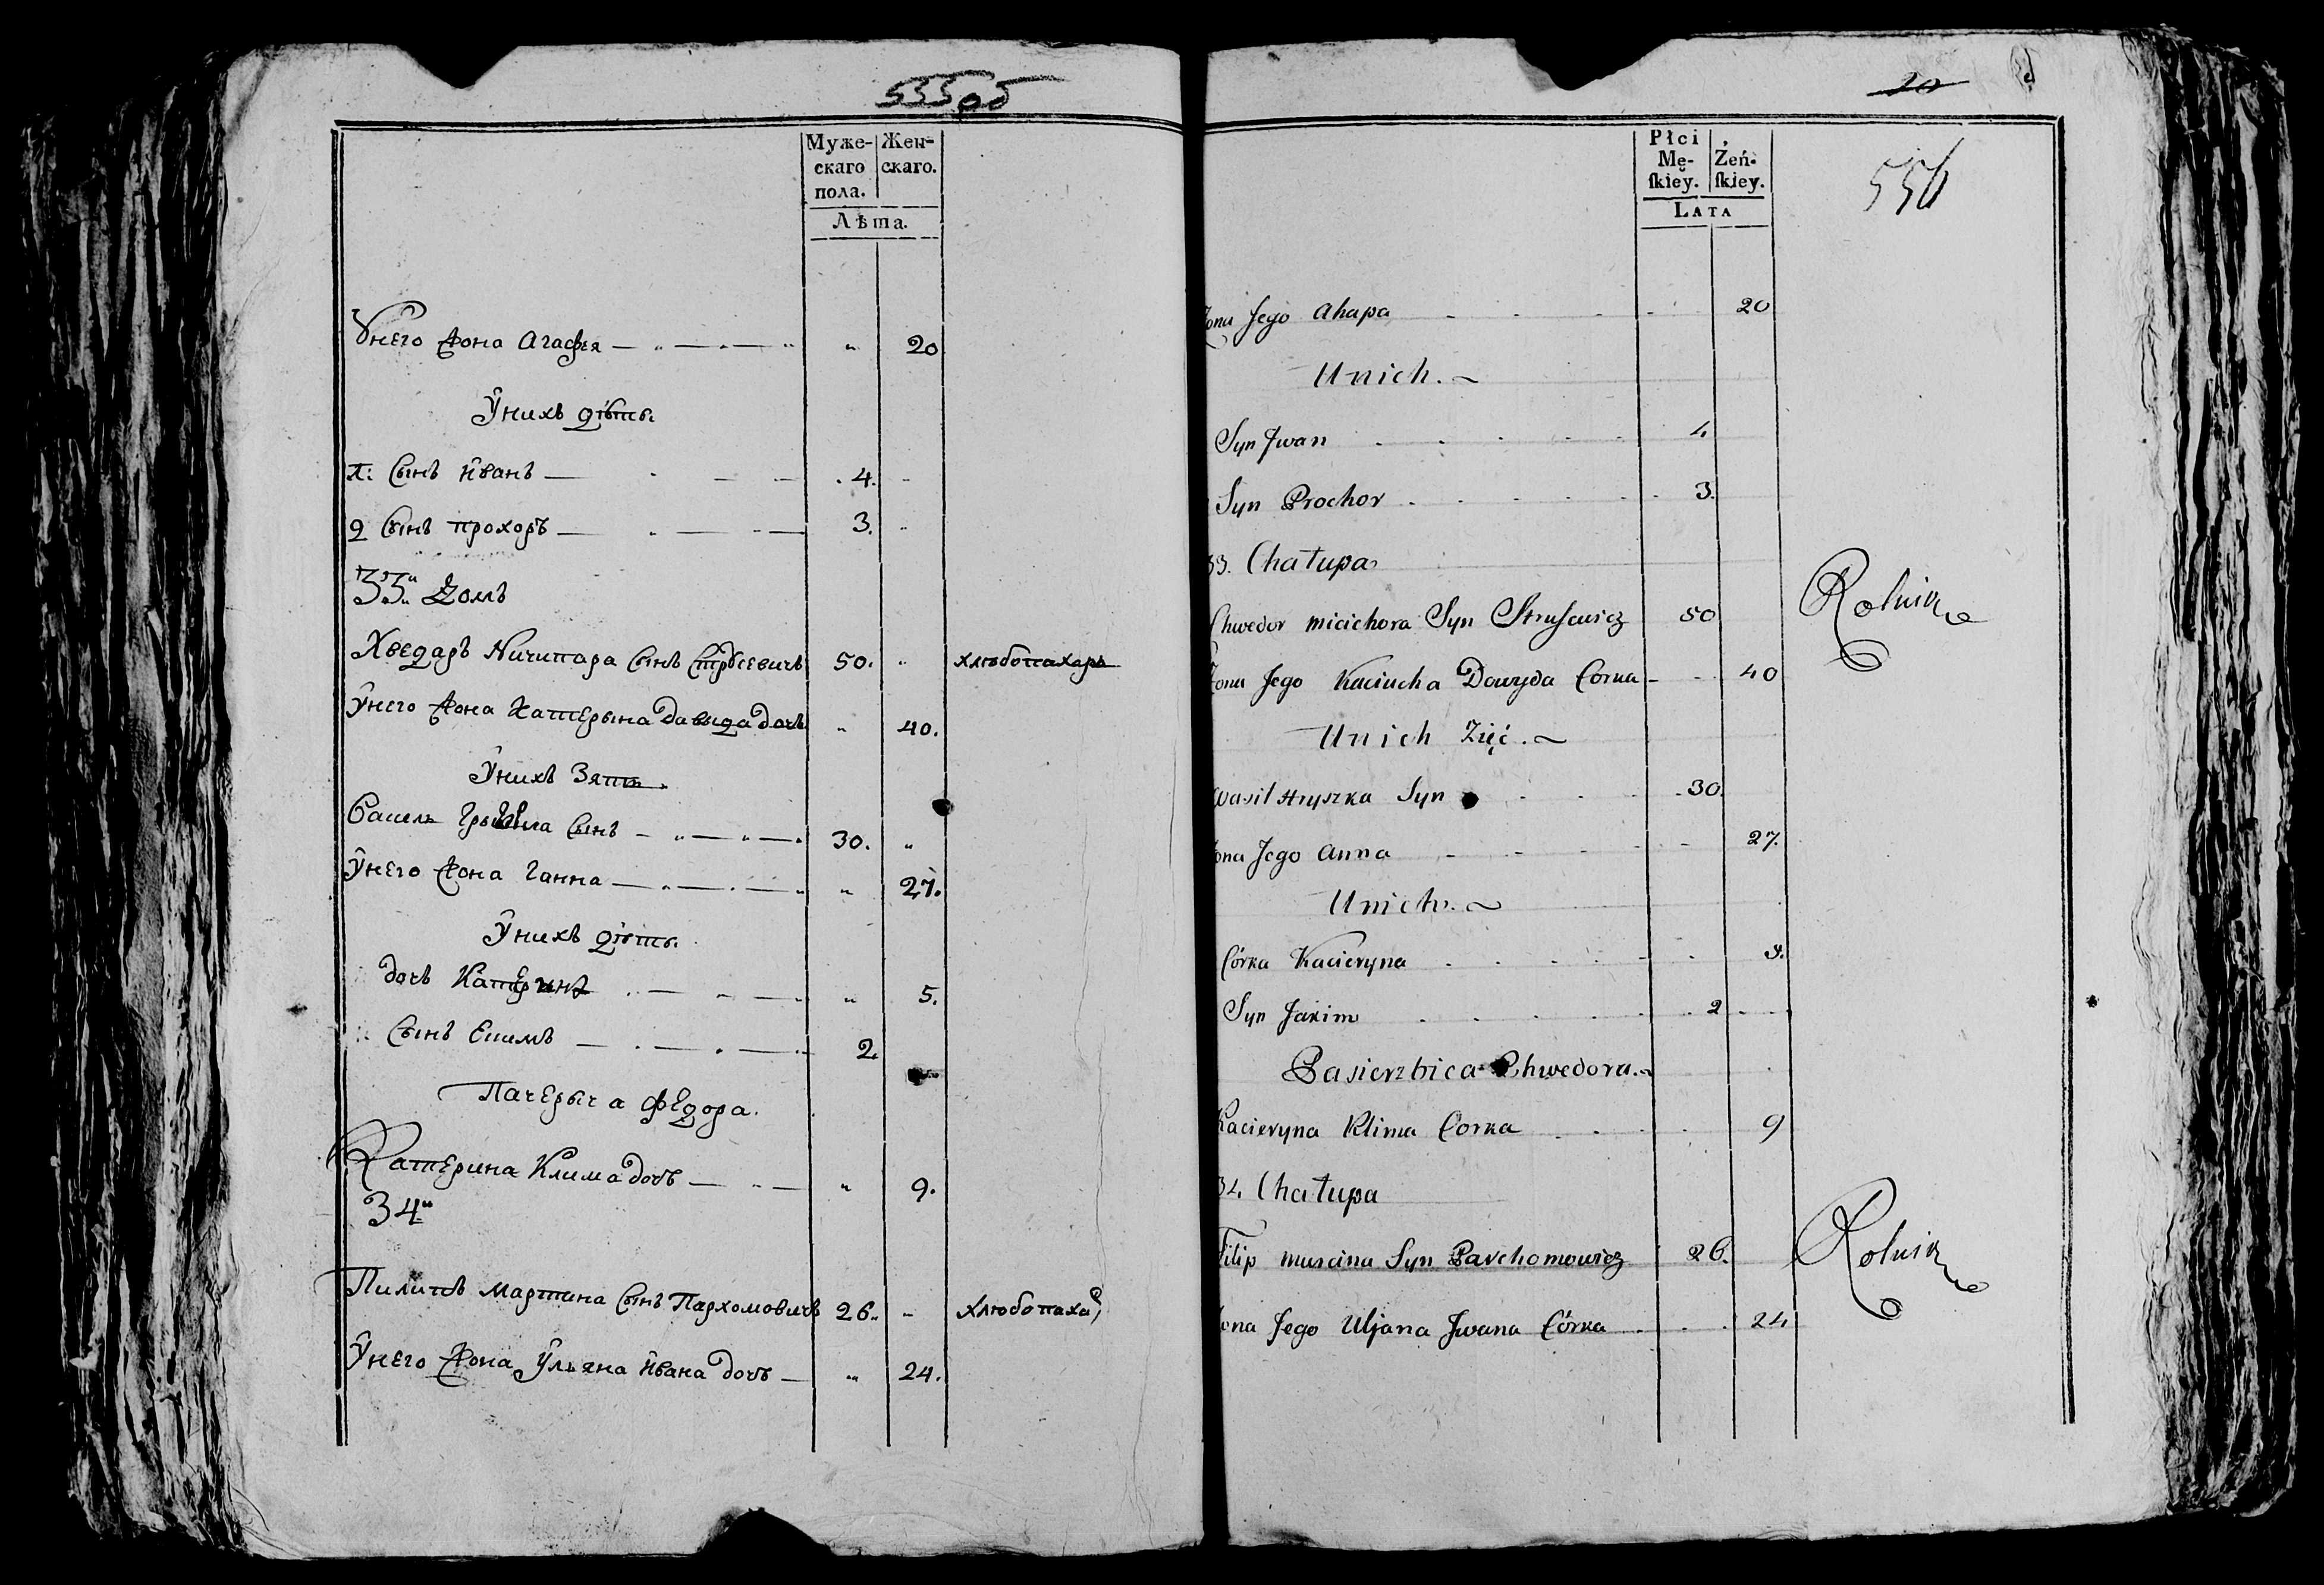 555 об
Муже- Жен-
скаго скаго.
пола.
Лѣта.
Унего жона Агафея 20
Унихъ дѣти.
1: Сынъ Иванъ 4.
2 Сынъ прохоръ 3.
33й Домъ
Хведаръ Ничипара Сынъ Струсевичъ 50. хлѣбопахаръ
Унего жона Катерына Давыда дочь 40.
Унихъ Зять.
Василь Сынъ 30. "
Унего жона Ганна 27.
Унихъ дѣти.
дочь Катерина 5.
Сынъ Екимъ 2.
Пачерыча Федора.
Катерина Клима дочь 9.
34й
Пилипъ Мартина Сынъ Пархомовичъ 26. хлѣбопахар
Унего жона Ульяна Ивана дочь 24.
20
556
Płci
Mę- Żeń-
ſkiey. ſkiey.
LATA
Żona Jego Ahapa 20
Unich.
Syn Jwan 4
Syn Prochor 3.
33. Chałupa
Chwedor Micichora Syn Strusewicz 50 Rolnik
Żona Jego Kaciucha Dawyda Corka 40
Unich Zięć.
Wasil Hryszka Syn 30.
Żona Jego Anna 27.
Unich.
Córka Kacieryna
Syn Jakim 2
Pasierzbica Chwedora.
Kacieryna Klima Corka 9
34 Chałupa
Filip Marcina Syn Parchomowicz 26. Rolnik
Żona Jego Uljana Jwana Córka 24